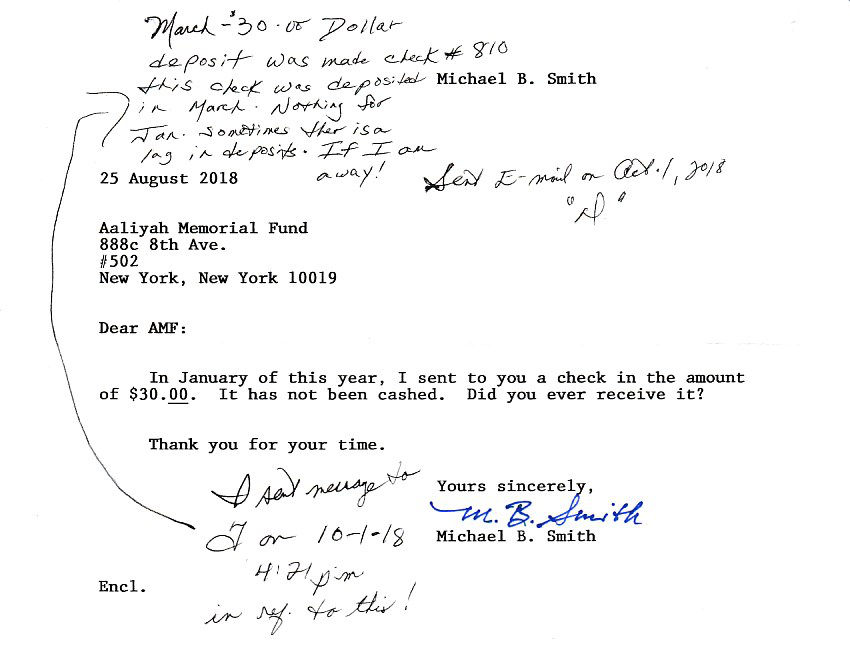 March - $30.00 Dollar
deposit was made check # 810
this check was deposited
Michael B. Smith
in March. Nothing for
Jan. Sometimes ther is a
lag in deposits. If I am
away!
25 August 2018
Sent E-mail on Oct. 1, 2018
Aaliyah Memorial Fund
888c 8th Ave.
#502
New York, New York 10019
Dear AMF:
In January of this year, I sent to you a check in the amount
of $30.00. It has not been cashed. Did you ever receive it?
Thank you for your time.
I sent message to
on 10-1-18
4:21 pm
in ref. to this!
Yours sincerely,
M. B. Smith
Michael B. Smith
Encl.